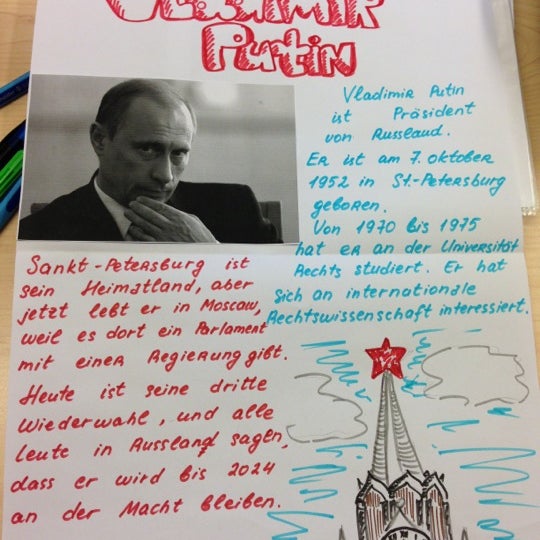 Vladimir
Putin
Vladimir Putin
ist Präsident
von Russland.
Er ist am 7. oktober
1952 in St.-Petersburg
geboren.
Von 1970 bis 1975
hat er an der Universität
Rechts studiert. Er hat
sich an internationale
Rechtswissenschaft interessiert.
Sankt-Petersburg ist
sein Heimatland, aber
jetzt lebt er in Moscow,
weil es dort ein Parlament
mit einer Regierung gibt.
Heute ist seine dritte
Wiederwahl, und alle
Leute in Russland sagen,
dass er wird bis 2024
an der Macht bleiben.